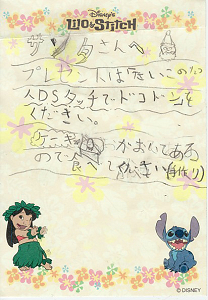 Disney's
LILO & STITCH
サンタさんへ
プレゼントは
人DSタッチでドコドン を
ください。
かおいてある
ので食べてください(手作り)
© DISNEY